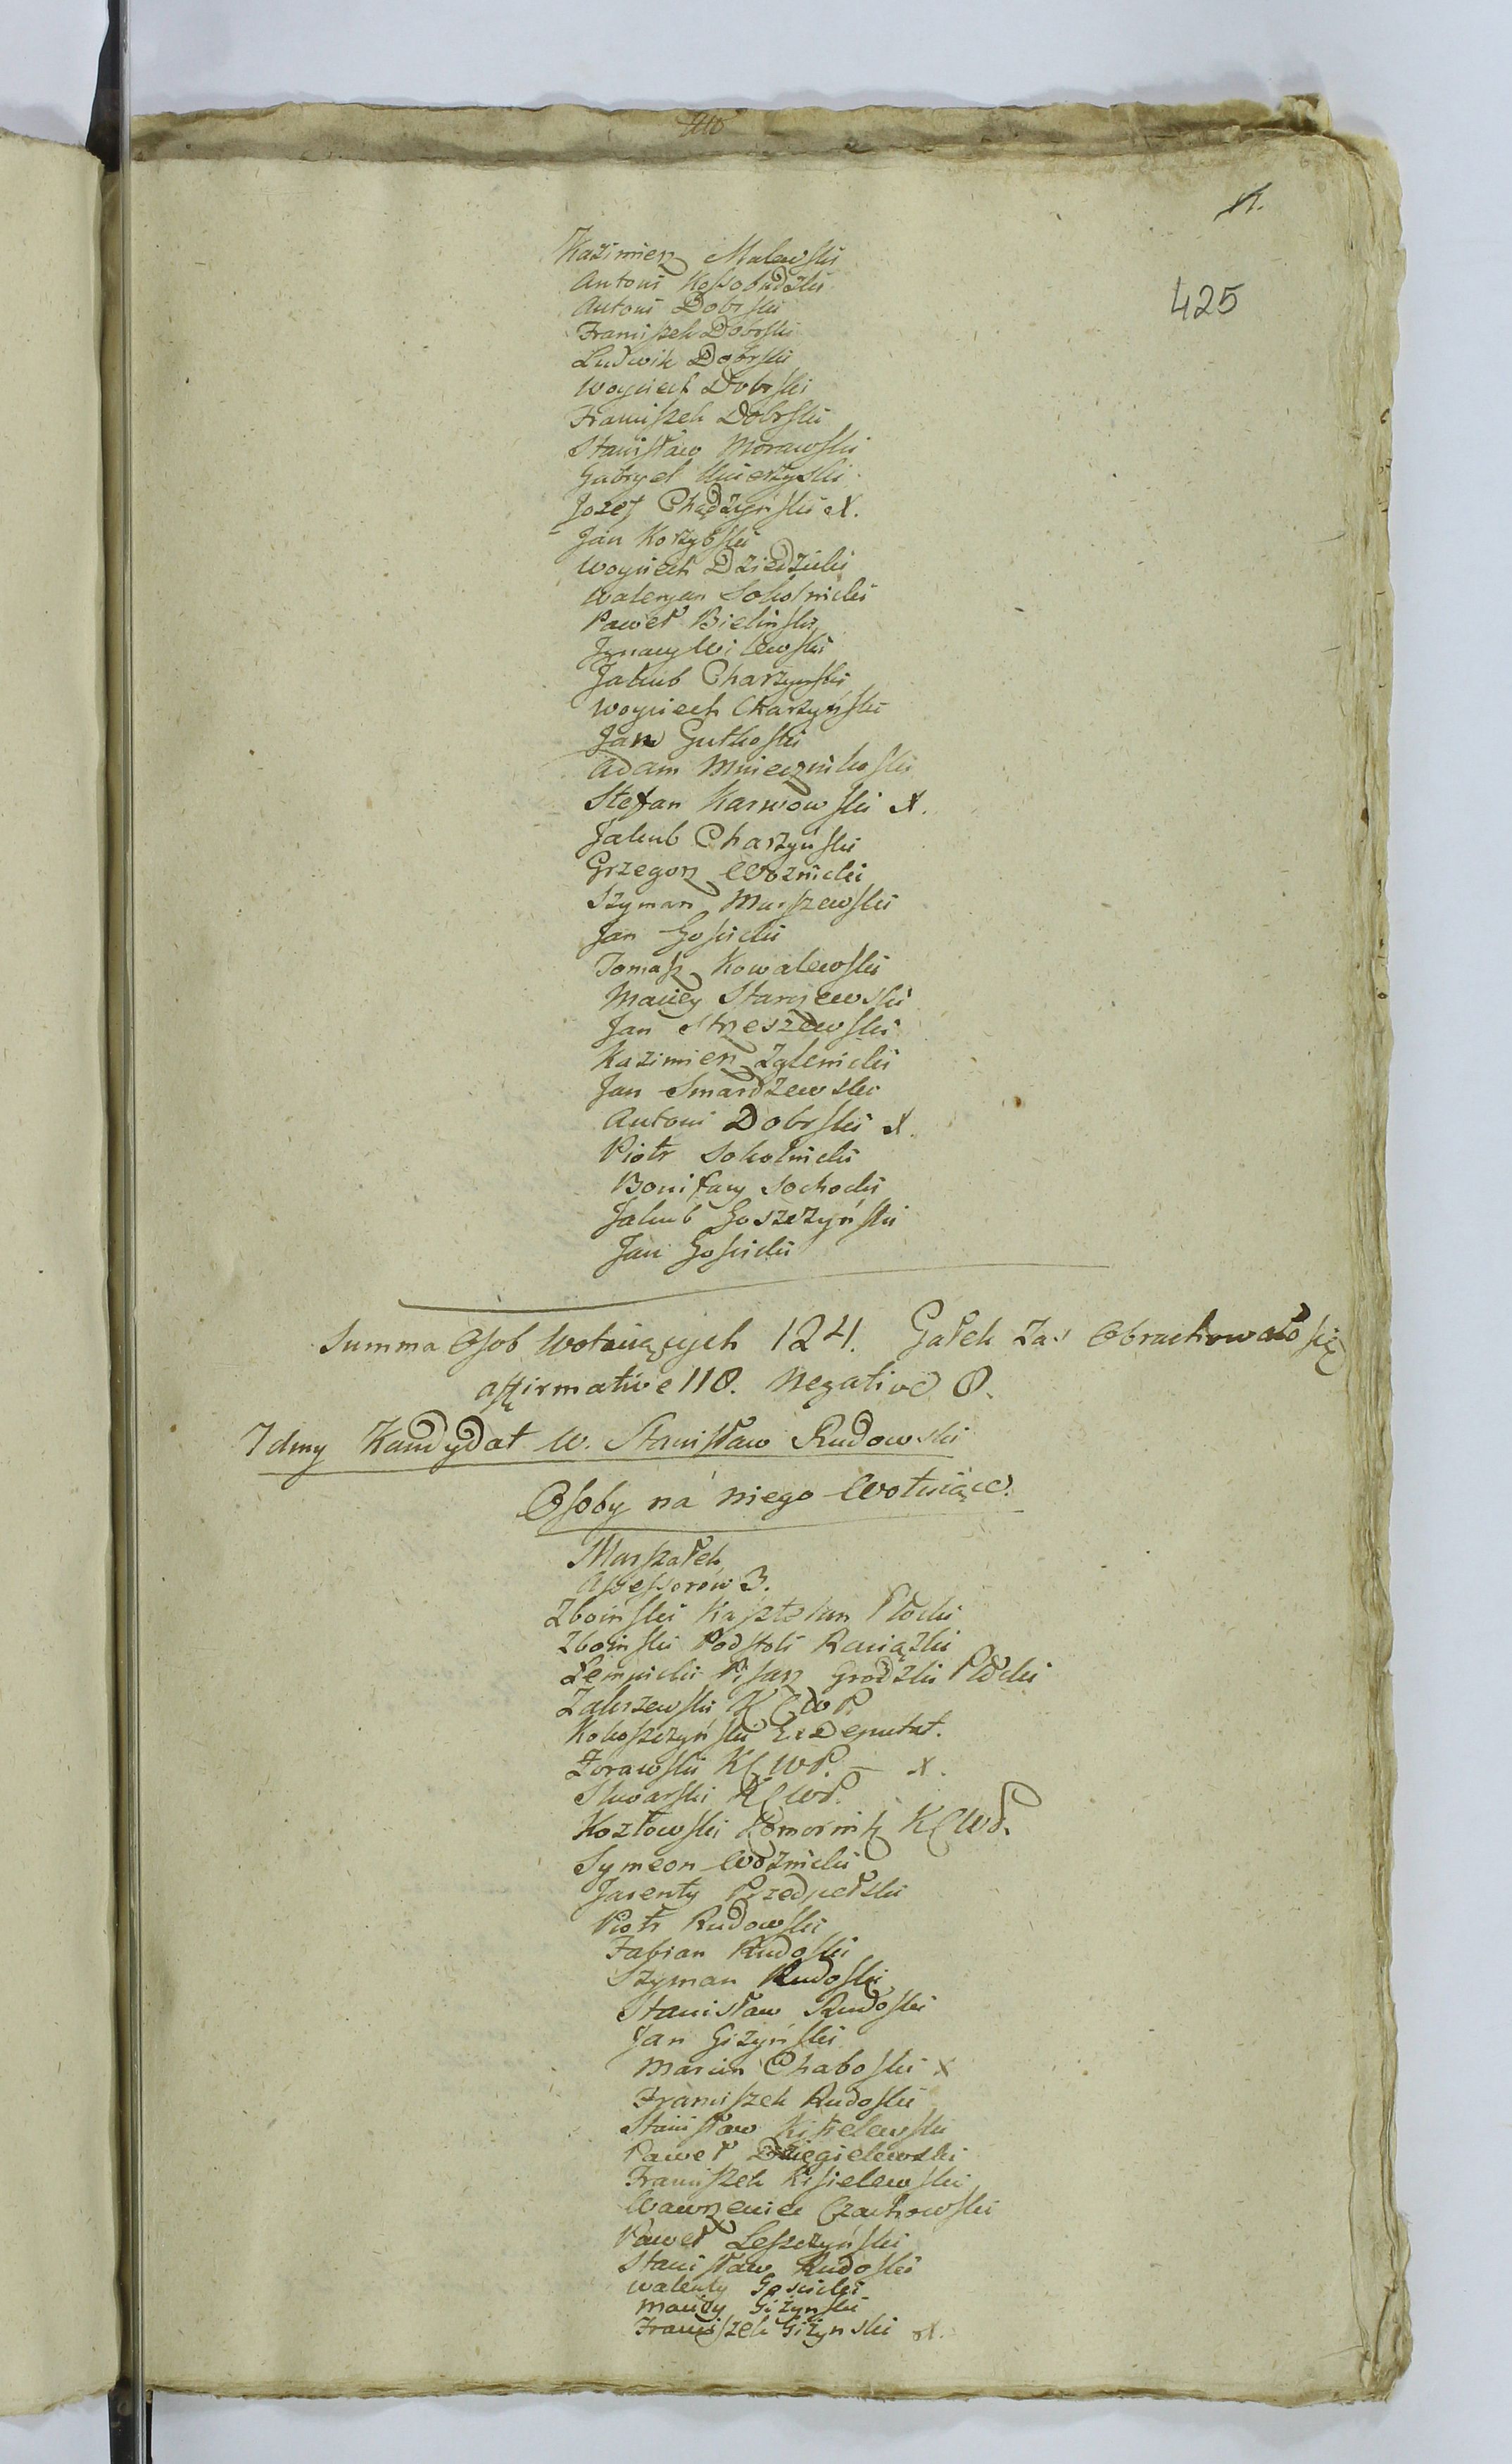 425
Kazimierz Malewski
Antoni Kossobudzki
Antoni Dobrski
Franciszek Dobrski
Ludwik Dobrski
Woyciech Dobrski
Franciszek Dobrski
Stanisław Morawski
Gabryel Umierzyski
Jozef Chądzyński X.
Jan Korzybski
Woyciech Dziedzicki
Waleryan Sokolnicki
Paweł Bielinski
Ignacy Wilewski
Jakub Charzynski
Woyciech Charzyński
Jan Gutkoski
Adam Mniecznikoski
Stefan Karwowski X.
Jakub Charzyński
Grzegorz Woznicki
Szyman Murszewski
Jan Goscicki
Tomasz Kowalewski
Maciey Starczewski
Jan Strzeszewski
Kazimierz Zglenicki
Jan Smardzewski
Antoni Dobrski X.
Piotr Sokolnicki
Bonifacy Sochocki
Jakub Goszczyński
Jan Goscicki
Summa Osob Wotuiących 124. Gałek Zas Obrachowało się
affirmative 118. Negative 8.
7dmy Kandydat W. Stanisław Rudowski
Osoby ná niego Wotuiące.
Marszałek
Assessorow 3.
Zboinski Kasztelan Płocki
Zboinski Podstoli Raciązki
Łempicki Pisarz Grodzki Płocki
Zakrzewski KCWP.
Kokoszczyński ExDeputat.
Zorawski KCWP. — X.
Skwarski KCWP.
Kozłowski Komornik KCWP.
Symeon Woznicki
Jacenty Przedpełski
Piotr Rudowski
Fabian Rudoski
Szyman Rudoski
Stanisław Rudoski
Jan Gizyński
Marcin Chaboski X
Franciszek Rudoski
Stanisław Kisielewski
Paweł Dzięgielewski
Franciszek Kisielewski
Wawrzeniec Czachowski
Paweł Leszczyński
Stanisław Rudoski
Walenty Goscicki
Maciey Gizynski
Franciszek Gizynski X.